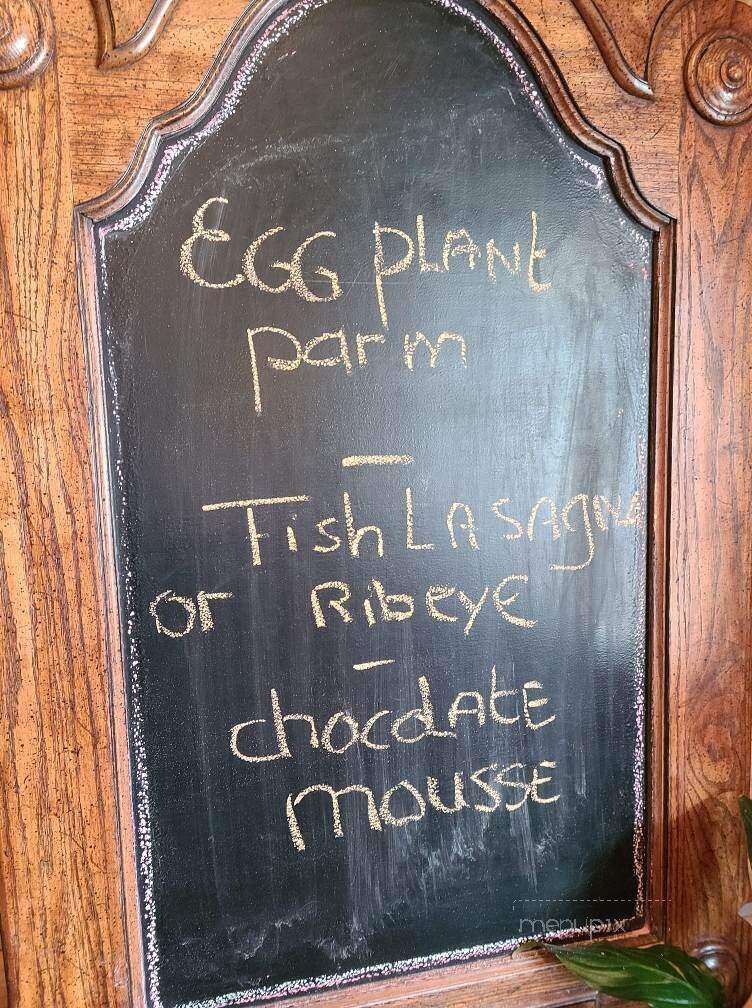 EGG pLANt
parm
—
Fish LASAgNA
or RibeyE
—
chocoLAtE
moussE
menupix